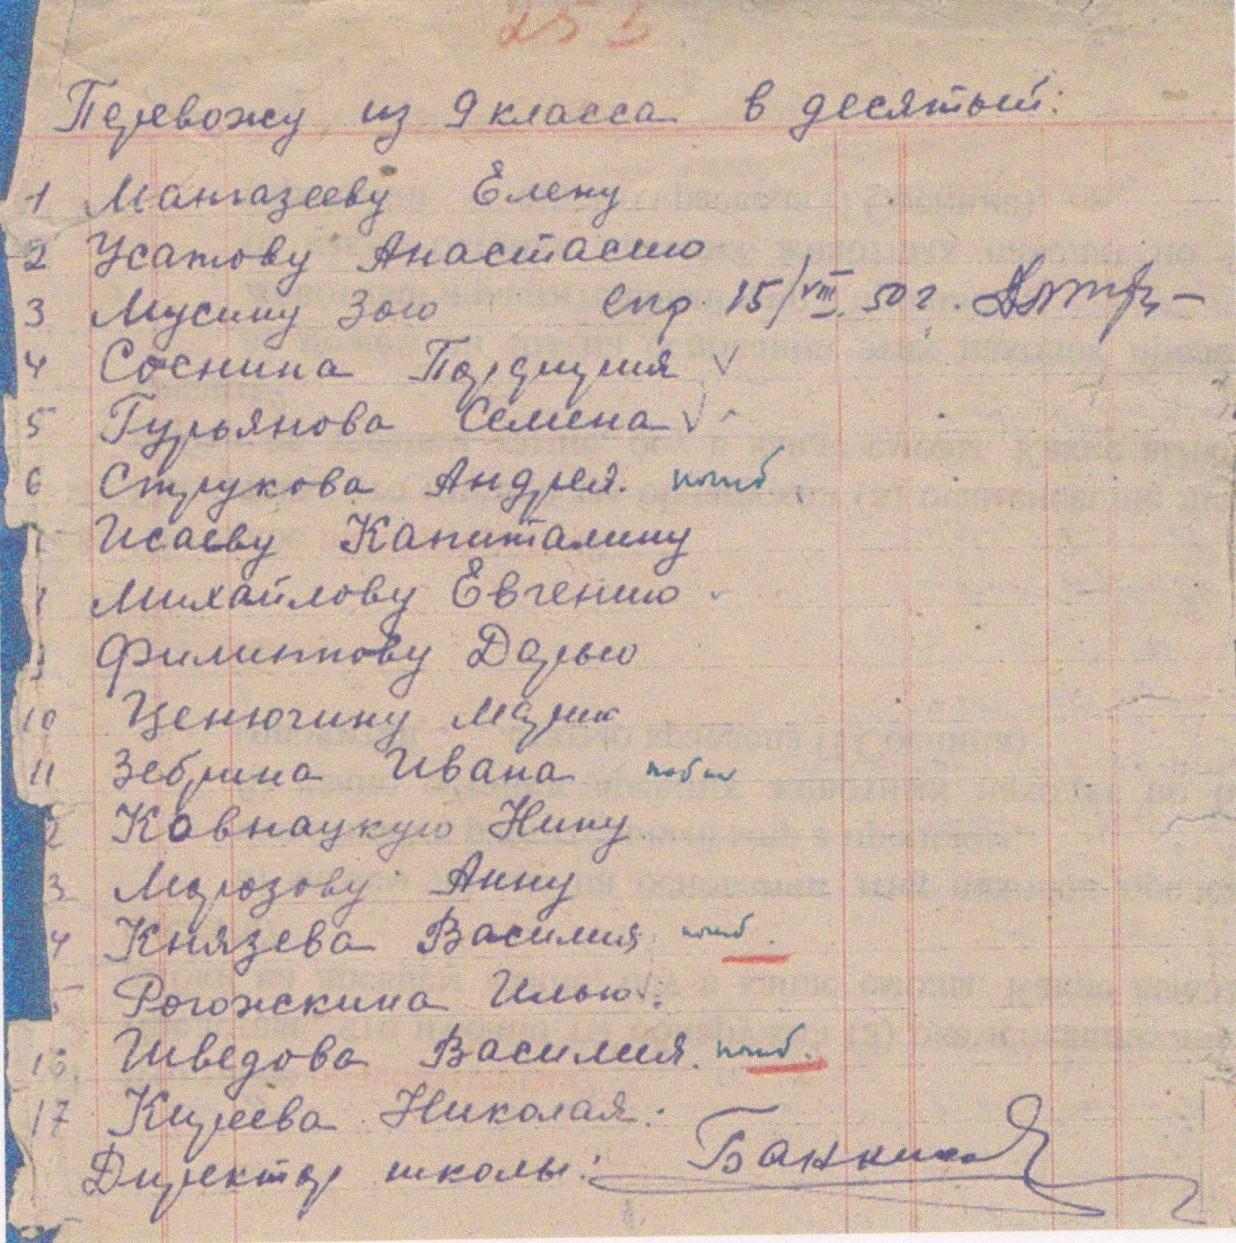 253
Перевожу из 9 класса в десятый:
1 Мангазееву Елену
2 Усатову Анастасию
3 Мусину Зою спр 15/VIII. 50 г.
4 Соснина Порфирия
5 Гурьянова Семена
6 Струкова Андрея. погиб
Исаеву Капиталину
Михайлову Евгению
Филиппову Дарью
10 Ценюгину Марию
11 Зебрина Ивана погиб
2 Нину
3 Морозову Анну
4 Князева Василия погиб
5 Рогожскина Илью.
16 Шведова Василия. погиб.
17 Киреева Николая.
Директор школы: